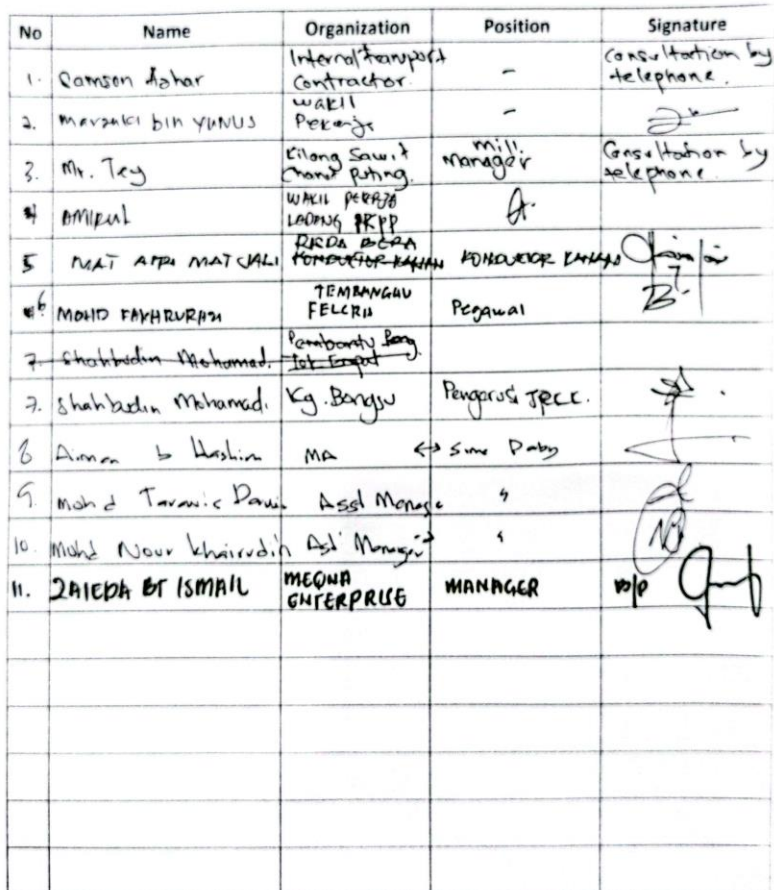 No Name Organization Position Signature
1. Samson Azhar Internal transport Contractor. - Consultation by telephone.
2. Marzuki bin YUNUS wakil Pekerja -
3. Mr. Tey Kilang Sawit Chand Puting. Mill Manager Consultation by telephone.
4 AMIRUL WAKIL LADANG PKPP
5 MAT MAT JALI RISDA BERA KONDUKTOR KONDUKTOR
6 MOHD FAKHRURAZI FELCRA Pegawai
7. Shahbudin Mohamad.
7. Shahbudin Mohamad. Kg. Bangsu Pengerusi JPKK.
8 Aiman b Hashim MA ↔ Sime Darby
9. Mohd Asst Manage "
10. Mohd Nour Khairudin Ast Manager "
11. ZAIEDA BT ISMAIL MEQNA ENTERPRISE MANAGER B/P